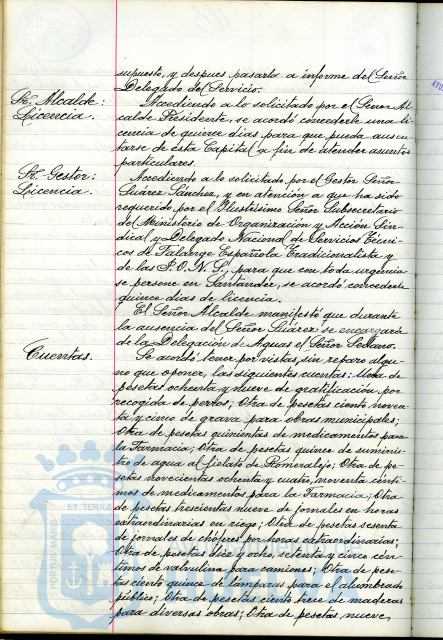 supuesto, y despues pasarlo a informe del Señor
Delegado del Servicio.
Sr. Alcalde:
Licencia.
Accediendo a lo solicitado por el Señor Al-
calde Presidente, se acordó concederle una li-
cencia de quince dias para que pueda ausen-
tarse de ésta Capital a fin de atender asuntos
particulares.
Sr. Gestor:
Licencia.
Accediendo a lo solicitado por el Gestor Señor
Suárez Sánchez, y en atención a que ha sido
requerido, por el Ilustrisimo Señor Subsecretario
del Ministerio de Organización y Acción Sin-
dical y Delegado Nacional de Servicios Técni-
cos de Falange Española Tradicionalista y
de las J.O.N.S., para que con toda urgencia
se persone en Santander, se acordó concederle
quince dias de licencia.
El Señor Alcalde manifestó que durante
la ausencia del Señor Suárez se encargará
de la Delegación de Aguas el Señor Sedano.
Cuentas.
Se acordó tener por vistas, sin reparo algu-
no que oponer, las siguientes cuentas: Una de
pesetas ochenta y nueve de gratificación por
recogida de perros; Otra de pesetas ciento noven-
ta y cinco de grava para obras municipales;
Otra de pesetas quinientas de medicamentos para
la Farmacia; Otra de pesetas quince de suminis-
tro de agua al fielato de Romeralejo; Otra de pe-
setas novecientas ochenta y cuatro, noventa cénti-
mos de medicamentos para la Farmacia; Otra
de pesetas trescientas nueve de jornales en horas
extraordinarias en riego; Otra de pesetas sesenta
de jornales de chóferes por horas extraordinarias;
Otra de pesetas diez y ocho, setenta y cinco cén-
timos de valvulina para camiones; Otra de pese-
tas ciento quince de lámparas para el alumbrado
público; Otra de pesetas ciento trece de maderas
para diversas obras; Otra de pesetas nueve,
PORTUS MARIS
ET TERRA